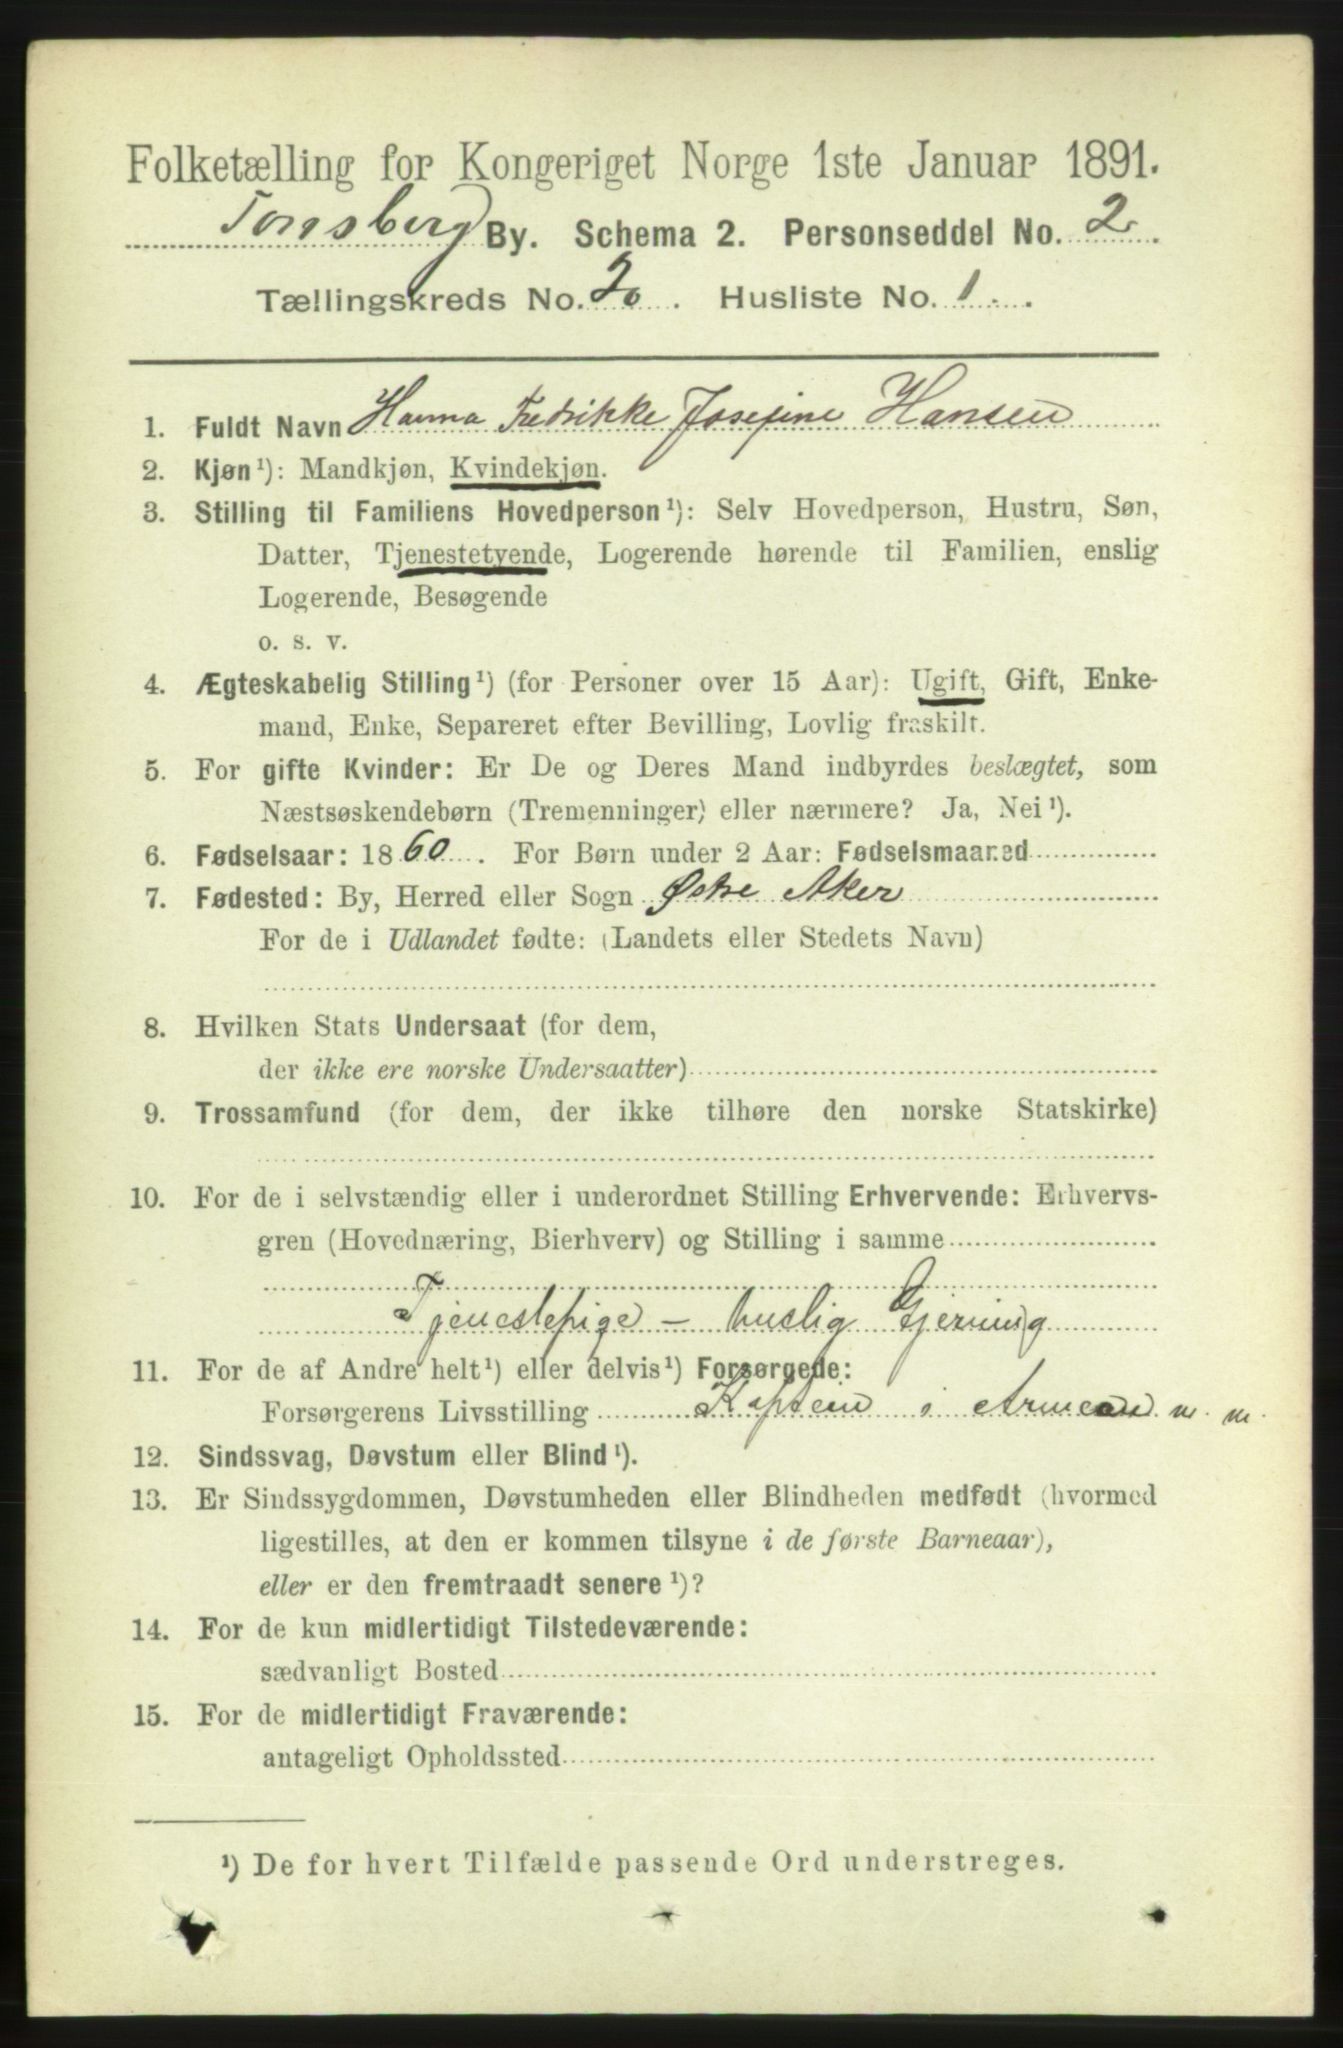 Folketælling for Kongeriget Norge 1ste Januar 1891.
Tønsberg By. Schema 2. Personseddel No. 2.
Tællingskreds No. 2. Husliste No. 1.
1. Fuldt Navn Hanna Fredrikke Josefine Hansen
2. Kjøn¹): Mandkjøn, Kvindekjøn.
3. Stilling til Familiens Hovedperson¹): Selv Hovedperson, Hustru, Søn,
Datter, Tjenestetyende, Logerende hørende til Familien, enslig
Logerende, Besøgende
o. s. v.
4. Ægteskabelig Stilling¹) (for Personer over 15 Aar): Ugift, Gift, Enke-
mand, Enke, Separeret efter Bevilling, Lovlig fraskilt.
5. For gifte Kvinder: Er De og Deres Mand indbyrdes beslægtet, som
Næstsøskendebørn (Tremenninger) eller nærmere? Ja, Nei¹).
6. Fødselsaar: 1860. For Børn under 2 Aar: Fødselsmaaned
7. Fødested: By, Herred eller Sogn Østre Aker
For de i Udlandet fødte: (Landets eller Stedets Navn)
8. Hvilken Stats Undersaat (for dem,
der ikke ere norske Undersaatter)
9. Trossamfund (for dem, der ikke tilhøre den norske Statskirke)
10. For de i selvstændig eller i underordnet Stilling Erhvervende: Erhvervs-
gren (Hovednæring, Bierhverv) og Stilling i samme
Tjenestepige – huslig Gjerning
11. For de af Andre helt¹) eller delvis¹) Forsørgede:
Forsørgerens Livsstilling Kaptein i Armeen m. m.
12. Sindssvag, Døvstum eller Blind¹).
13. Er Sindssygdommen, Døvstumheden eller Blindheden medfødt (hvormed
ligestilles, at den er kommen tilsyne i de første Barneaar),
eller er den fremtraadt senere¹)?
14. For de kun midlertidigt Tilstedeværende:
sædvanligt Bosted
15. For de midlertidigt Fraværende:
antageligt Opholdssted
¹) De for hvert Tilfælde passende Ord understreges.